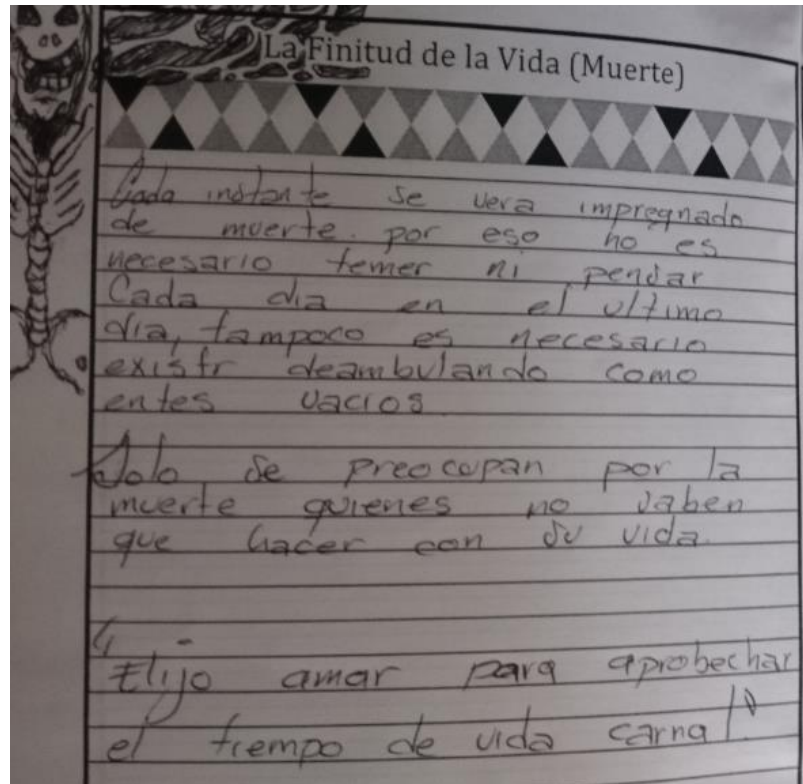 La Finitud de la Vida (Muerte)
Cada instante se vera impregnado
de muerte. por eso no es
necesario temer ni pensar
Cada dia en el ultimo
dia, tampoco es necesario
existr deambulando como
entes vacios
Solo se preocupan por la
muerte quienes no saben
que hacer con su vida.
"Elijo amar para aprobechar
el tiempo de vida carnal"